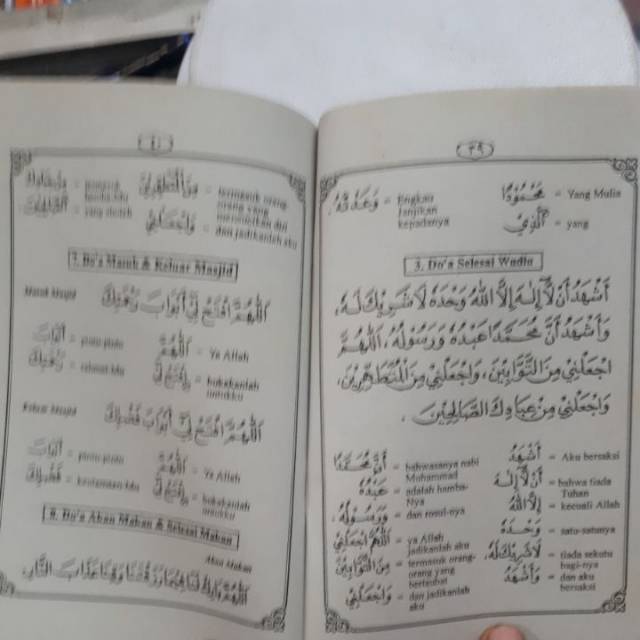 ٣٩
مَحْمُوْدًا = Yang Mulia
الَّذِيْ = yang
وَعَدْتَهُ = Engkau janjikan kepadanya
3. Do'a Selesai Wudlu
أَشْهَدُ أَنْ لَا إِلٰهَ إِلَّا اللهُ وَحْدَهُ لَا شَرِيْكَ لَهُ،
وَأَشْهَدُ أَنَّ مُحَمَّدًا عَبْدُهُ وَرَسُوْلُهُ، اَللّٰهُمَّ
اجْعَلْنِيْ مِنَ التَّوَّابِيْنَ، وَاجْعَلْنِيْ مِنَ الْمُتَطَهِّرِيْنَ،
وَاجْعَلْنِيْ مِنْ عِبَادِكَ الصَّالِحِيْنَ.
أَشْهَدُ = Aku bersaksi
أَنْ لَا إِلٰهَ = bahwa tiada Tuhan
إِلَّا اللهُ = kecuali Allah
وَحْدَهُ = satu-satunya
لَا شَرِيْكَ لَهُ = tiada sekutu bagi-nya
وَأَشْهَدُ = dan aku bersaksi
أَنَّ مُحَمَّدًا = bahwasanya nabi Muhammad
عَبْدُهُ = adalah hamba-Nya
وَرَسُوْلُهُ = dan rasul-nya
اَللّٰهُمَّ اجْعَلْنِيْ = ya Allah jadikanlah aku
مِنَ التَّوَّابِيْنَ = termasuk orang-orang yang bertaubat
وَاجْعَلْنِيْ = dan jadikanlah aku
٤٠
مِنَ الْمُتَطَهِّرِيْنَ = termasuk orang
وَاجْعَلْنِيْ = dan jadikanlah aku
الصَّالِحِيْنَ = yang sholeh
7. Do'a Masuk & Keluar Masjid
Masuk Masjid
اَللّٰهُمَّ افْتَحْ لِيْ أَبْوَابَ رَحْمَتِكَ
اَللّٰهُمَّ = Ya Allah
افْتَحْ لِيْ = bukakanlah untukku
أَبْوَابَ = pintu-pintu
رَحْمَتِكَ = rahmat-Mu
Keluar Masjid
اَللّٰهُمَّ افْتَحْ لِيْ أَبْوَابَ فَضْلِكَ
اَللّٰهُمَّ = Ya Allah
افْتَحْ لِيْ = bukakanlah untukku
أَبْوَابَ = pintu-pintu
فَضْلِكَ = keutamaan-Mu
8. Do'a Akan Makan & Selesai Makan
Akan Makan
اَللّٰهُمَّ بَارِكْ لَنَا فِيْمَا رَزَقْتَنَا وَقِنَا عَذَابَ النَّارِ